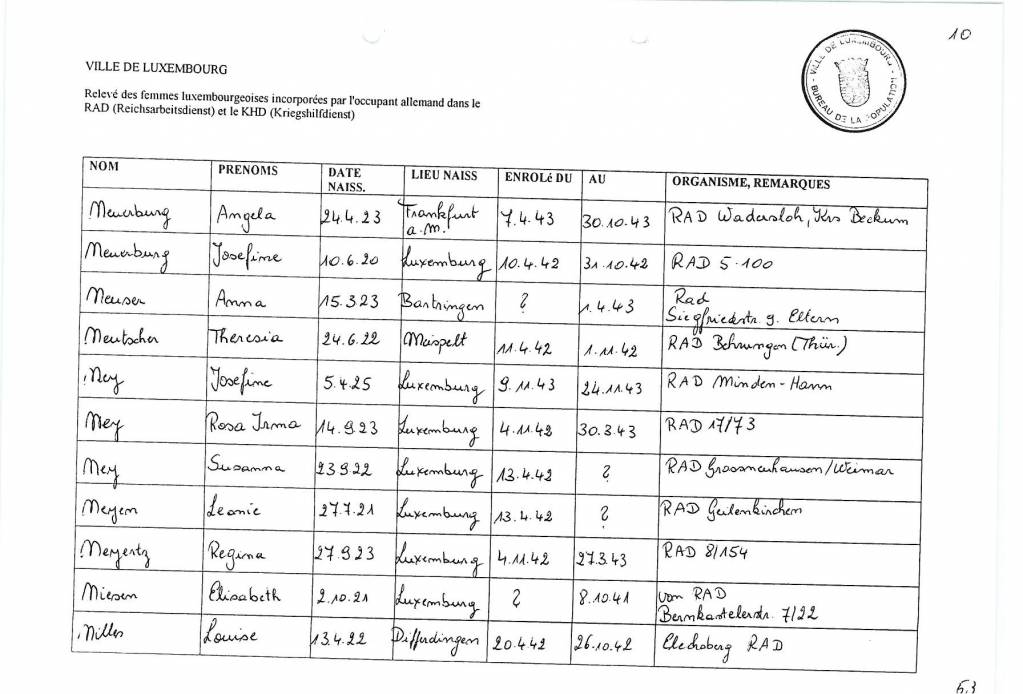 10
VILLE DE LUXEMBOURG
Relevé des femmes luxembourgeoises incorporées par l'occupant allemand dans le
RAD (Reichsarbeitsdienst) et le KHD (Kriegshilfdienst)
VILLE DE LUXEMBOURG
BUREAU DE LA POPULATION
NOM PRENOMS DATE NAISS. LIEU NAISS ENROLé DU AU ORGANISME, REMARQUES
Neuerburg Angela 24.4.23 Frankfurt a.M. 7.4.43 30.10.43 RAD Wadersloh, Krs Beckum
Neuerburg Josefine 10.6.20 Luxemburg 10.4.42 31.10.42 RAD 5.100
Neuser Anna 15.3.23 Bartringen ? 1.4.43 Rad
Siegfriedstr. 9. Eltern
Neutscher Theresia 24.6.22 Meispelt 11.4.42 1.11.42 RAD Behrungen (Thür.)
Ney Josefine 5.4.25 Luxemburg 9.11.43 24.11.43 RAD Minden-Hann
Ney Rosa Irma 14.9.23 Luxemburg 4.11.42 30.3.43 RAD 17/73
Ney Susanna 23.9.22 Luxemburg 13.4.42 ? RAD /Weimar
Neyen Leonie 27.7.21 Luxemburg 13.4.42 ? RAD Geilenkirchen
Neyertz Regina 27.9.23 Luxemburg 4.11.42 27.3.43 RAD 8/154
Niesen Elisabeth 2.10.21 Luxemburg ? 8.10.41 von RAD
Bernkastelerstr. 7/22
Nilles Louise 13.4.22 Differdingen 20.4.42 26.10.42 RAD